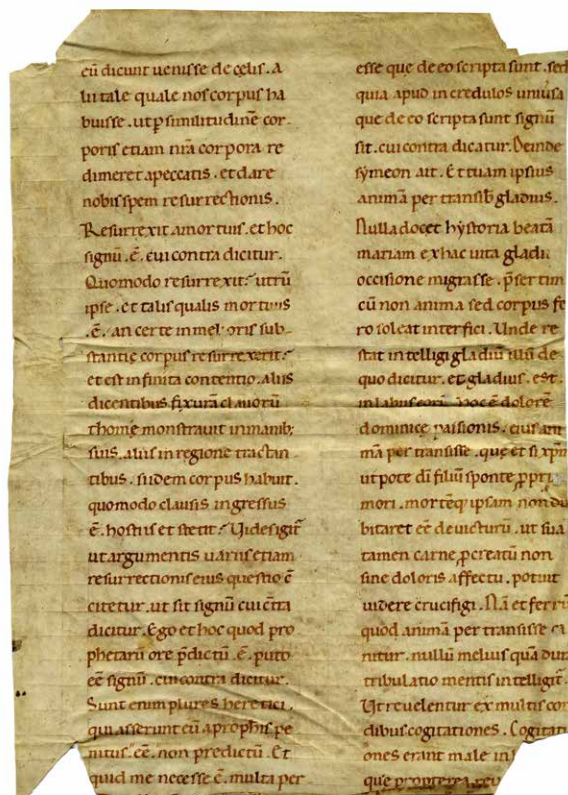 eū dicunt uenisse de cęlis. A
lii tale quale nos corpus ha
buisse. ut ꝑ similitudinē cor
poris etiam nr̄a corpora re
dimeret a peccatis. et dare
nobis spem resurrectionis.
Resurrexit a mortuis. et hoc
signū. ē. cui contra dicitur.
Quomodo resurrexit? utrū
ipse. et talis qualis mortuus
.ē. an certe in melioris sub
stantię corpus resurrexerit?
et est infinita contentio. aliis
dicentibus fixurā clauorū
thomę monstrauit in manib;
suis. aliis in regione tractan
tibus. si idem corpus habuit.
quomodo clausis ingressus
ē. hostiis et stetit? Uides igit̄
ut argumentis uariis etiam
resurrectionis eius questio c̄
citetur. ut sit signū cui c̄tra
dicitur. Ego et hoc quod pro
phetarū ore p̄dictū .ē. puto
eē signū. cui contra dicitur.
Sunt enim plures heretici.
qui asserunt eū a prophis pe
nitus .eē. non predictū. Et
quid me necesse ē. multa per
esse que de eo scripta sunt. sed
quia apud incredulos uniusa
que de eo scripta sunt signū
sit. cui contra dicatur. Deinde
symeon ait. Et tuam ipsius
animā per transib̄ gladius.
Nulla docet hystoria beatā
mariam ex hac uita gladii
occisione migrasse. p̄sertim
cū non anima sed corpus fe
ro soleat interfici. Unde re
stat intelligi gladiū illū de
quo dicitur. et gladius. est.
in labiis eorū. hoc ē dolorē
dominicę passionis. eius ani
mā per transisse. que et si xp̄m
ut pote dī filiū sponte ꝓpri
mori. mortēq; ipsam non du
bitaret eē deuicturū. ut sua
tamen carne ꝓcreatū non
sine doloris affectu. potuit
uidere crucifigi. Nā et ferrū
quod animā per transisse ca
nitur. nullū melius quā dura
tribulatio mentis intelligit̄.
Ut reuelentur ex multis cor
dibus cogitationes. Cogitati
ones erant male in
que propterea